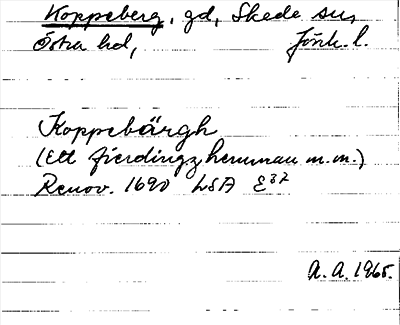 Koppeberg, gd, Skede sn,
Östra hd, Jönk. l.
Koppebärgh
(Ett fierdingz hemman m.m.)
Renov. 1690 LSA E37
A. A. 1965.